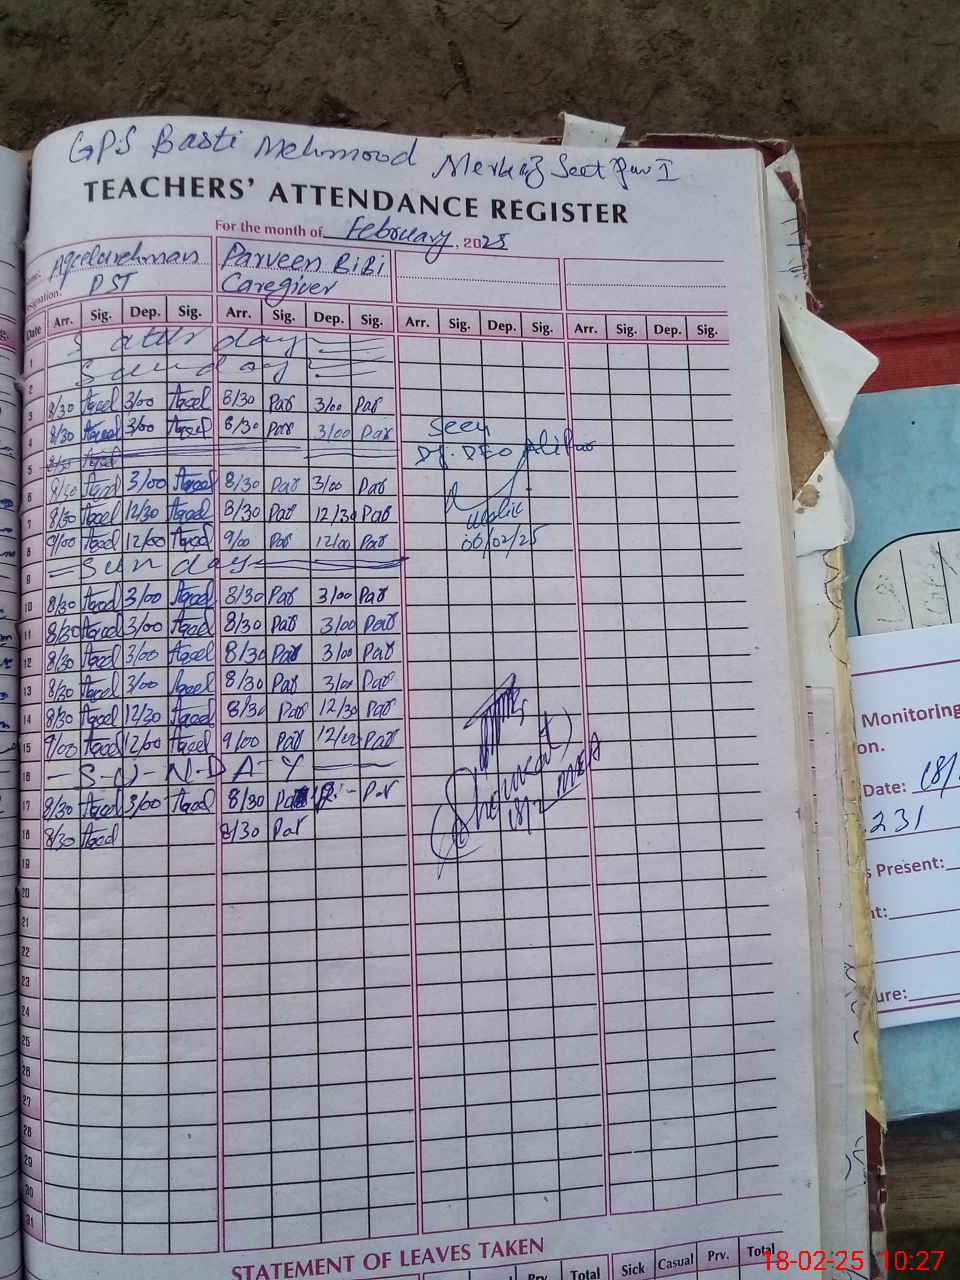 GPS Basti Mehmood Merkiz Seet Pur I
TEACHERS' ATTENDANCE REGISTER
For the month of February, 2025
Aqeelurehman Parveen BiBi
Designation: PST Caregiver
Date Arr. Sig. Dep. Sig. Arr. Sig. Dep. Sig. Arr. Sig. Dep. Sig. Arr. Sig. Dep. Sig.
1 Satturday
2 Sunday
3 8/30 Aqeel 3/00 Aqeel 8/30 Par 3/00 Par
4 8/30 Aqeel 3/00 Aqeel 8/30 Par 3/00 Par
5 8/30 Aqeel
6 8/30 Aqeel 3/00 Aqeel 8/30 Par 3/00 Par
7 8/30 Aqeel 12/30 Aqeel 8/30 Par 12/30 Par
8 9/00 Aqeel 12/00 Aqeel 9/00 Par 12/00 Par
9 Sunday
10 8/30 Aqeel 3/00 Aqeel 8/30 Par 3/00 Par
11 8/30 Aqeel 3/00 Aqeel 8/30 Par 3/00 Par
12 8/30 Aqeel 3/00 Aqeel 8/30 Par 3/00 Par
13 8/30 Aqeel 3/00 Aqeel 8/30 Par 3/00 Par
14 8/30 Aqeel 12/30 Aqeel 8/30 Par 12/30 Par
15 9/00 Aqeel 12/00 Aqeel 9/00 Par 12/00 Par
16 - S-U-N-D-A-Y
17 8/30 Aqeel 3/00 Aqeel 8/30 Par Par
18 8/30 Aqeel 8/30 Par
19
20
21
22
23
24
25
26
27
28
29
30
31
Seen
Dy. DEO Alipur
06/02/25
(Shoukat)
18/2 MEA
STATEMENT OF LEAVES TAKEN
Prv. Total Sick Casual Prv. Total
Monitoring
on.
Date: 18/
231
s Present:
nt:
ure:
18-02-25 10:27